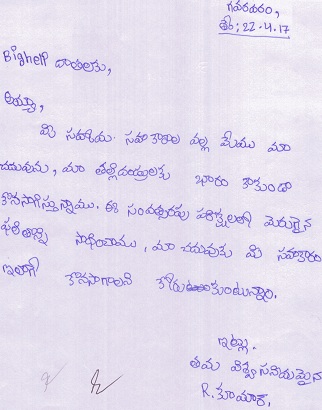 గవరవరం,
తేది: 22-4-17
Bighelp దాతలకు,
అయ్యా,
మీ సహాయ సహకారాల వల్ల మేము మా
చదువును, మా తల్లిదండ్రులకు భారం కాకుండా
కొనసాగిస్తున్నాము. ఈ సంవత్సరపు పరీక్షలలో మెరుగైన
ఫలితాన్ని సాధించాము, మా చదువుకు మీ సహకారం
ఇలాగే కొనసాగాలని కోరుకుంటున్నాం.
ఇట్లు.
తమ విశ్వసనీయమైన
R. కుమారి.